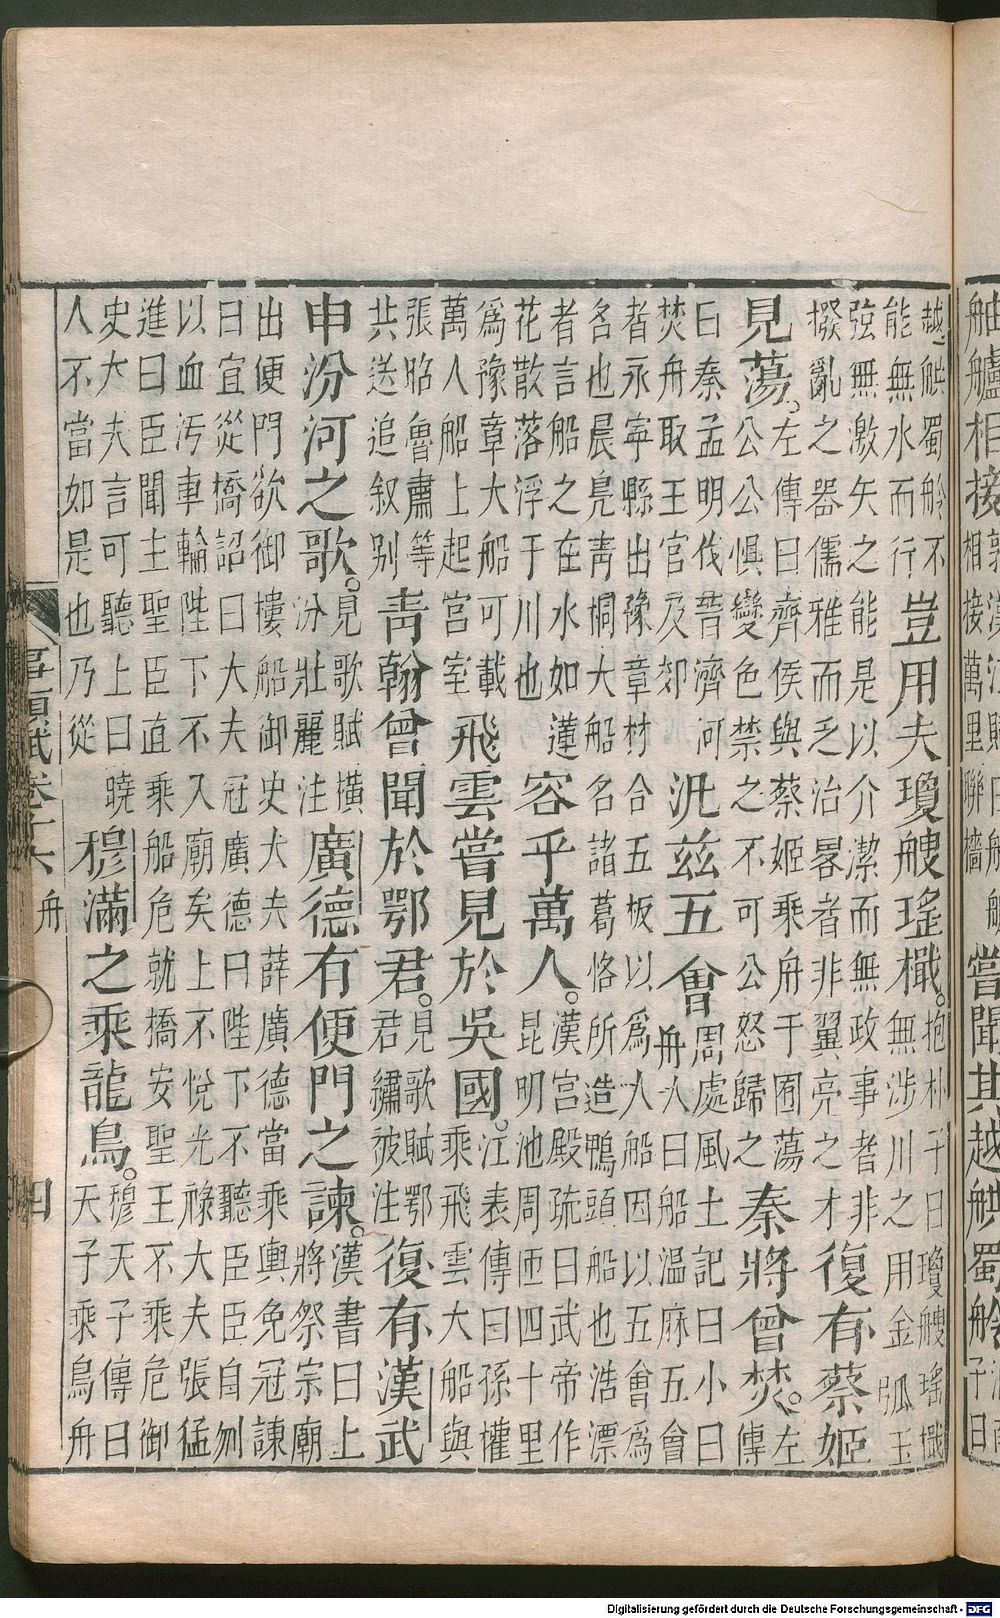 舳艫相接
相接萬里聯檣
嘗聞其越舼蜀艅
子曰
越舼蜀艅不
能無水而行
豈用夫瓊艘瑤檝。
抱朴子曰瓊艘瑤檝
無涉川之用金弧玉
弦無激矢之能是以介潔而無政事者非
撥亂之器儒雅而乏治畧者非翼亮之才
復有蔡姬
見蕩。
左傳曰齊侯與蔡姬乗舟于囿蕩
公公懼變色禁之不可公怒歸之
秦將曾焚。
左
傳
曰秦孟明伐晉濟河
焚舟取王官及郊
汎兹五會
周處風土記曰小曰
舟人曰船温麻五會
者永寧縣出豫章材合五板以為大船因以五會為
名也晨鳧靑桐大船名諸葛恪所造鴨頭船也浩漂
者言船之在水如蓮
花散落浮于川也
容乎萬人。
漢宮殿疏曰武帝作
昆明池周匝四十里
為豫章大船可載
萬人船上起宮室
飛雲嘗見於吳國。
江表傳曰孫權
乘飛雲大船與
張昭魯肅等
共送追叙别
靑翰曾聞於鄂君。
見歌賦鄂
君繡被注
復有漢武
申汾河之歌。
見歌賦橫
汾壯麗注
廣德有便門之諫。
漢書曰上
將祭宗廟
出便門欲御樓船御史大夫薛廣德當乘輿免冠諫
曰宜從橋詔曰大夫冠廣德曰陛下不聽臣臣自刎
以血汚車輪陛下不入廟矣上不悅光祿大夫張猛
進曰臣聞主聖臣直乘船危就橋安聖王不乘危御
史大夫言可聽上曰曉
人不當如是也乃從
穆滿之乘龍鳥。
穆天子傳曰
天子乘鳥舟
事類賦卷十六 舟 四
Digitalisierung gefördert durch die Deutsche Forschungsgemeinschaft - DFG